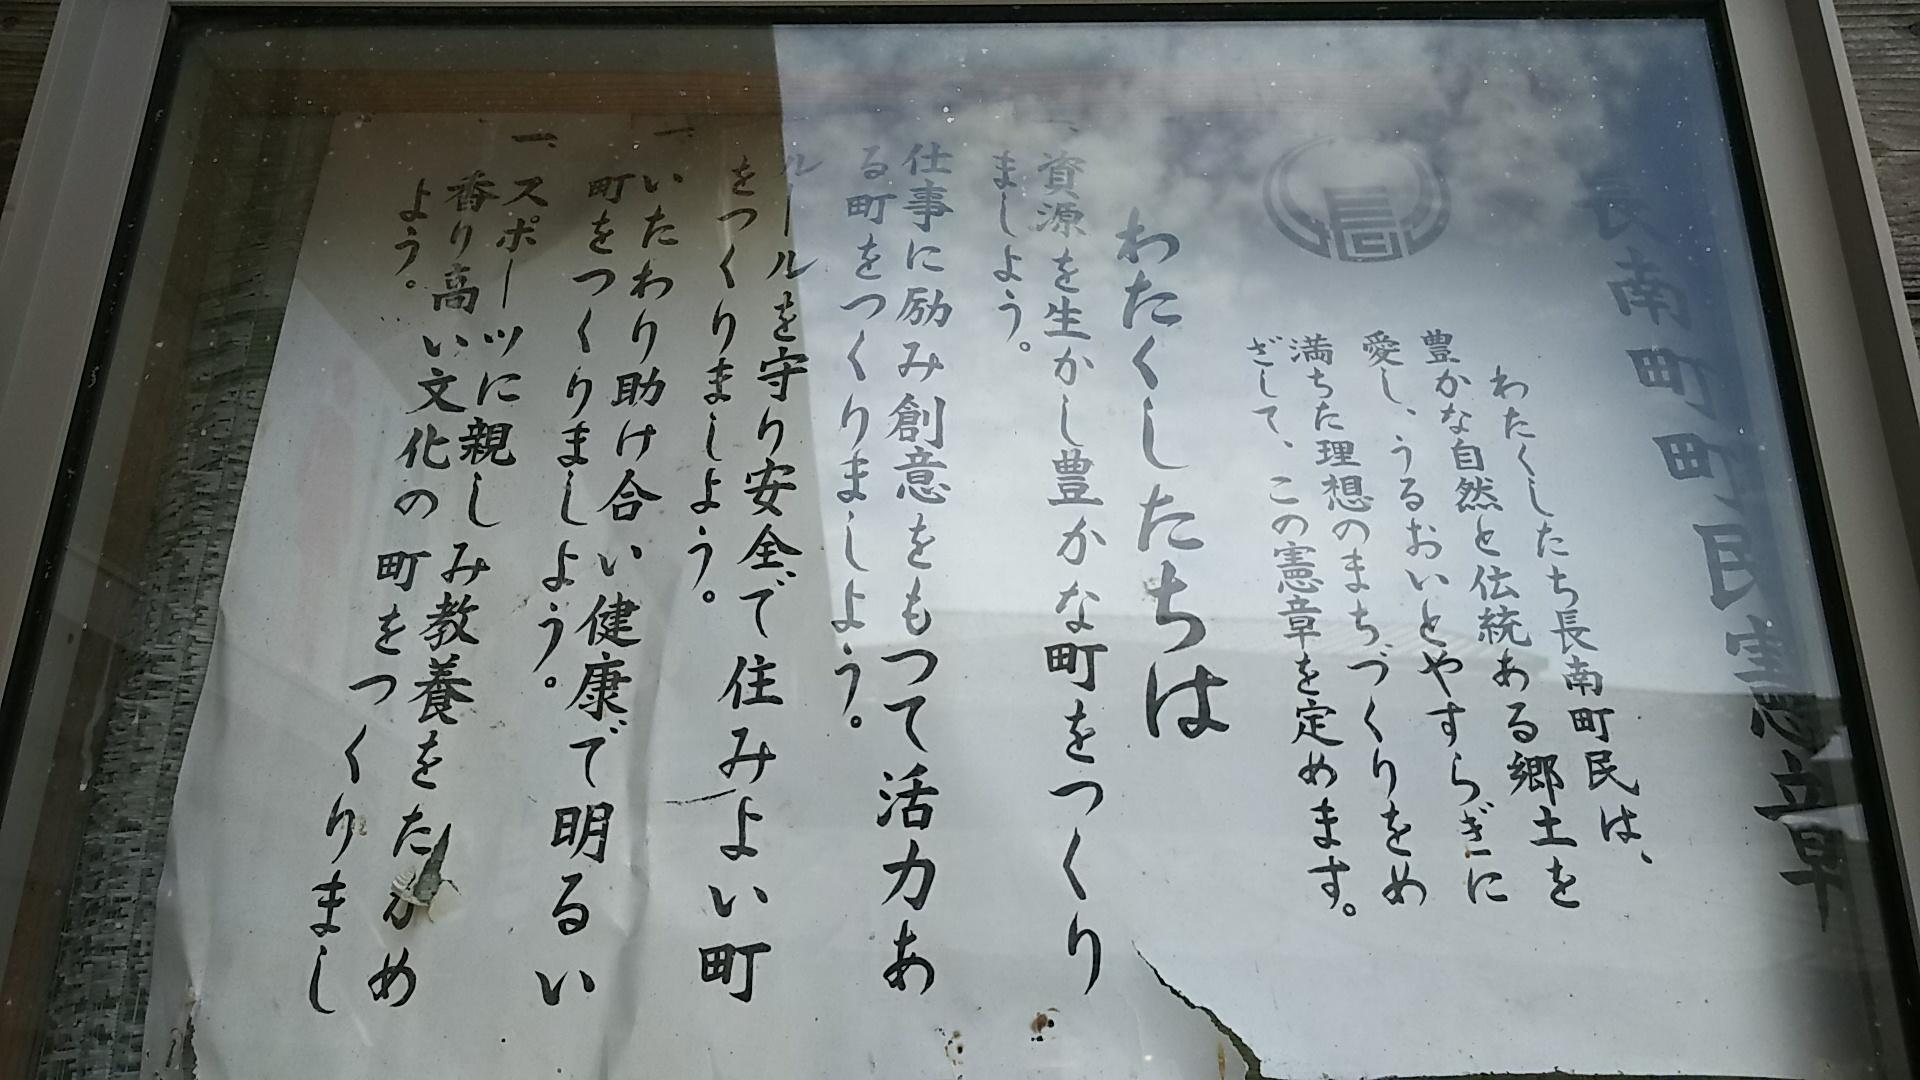 長南町町民憲章
わたくしたち長南町民は、
豊かな自然と伝統ある郷土を
愛し、うるおいとやすらぎに
満ちた理想のまちづくりをめ
ざして、この憲章を定めます。
長
わたくしたちは
一、資源を生かし豊かな町をつくり
ましよう。
仕事に励み創意をもつて活力あ
る町をつくりましよう。
ルールを守り安全で住みよい町
をつくりましよう。
一、いたわり助け合い健康で明るい
町をつくりましよう。
一、スポーツに親しみ教養をたかめ
香り高い文化の町をつくりまし
よう。